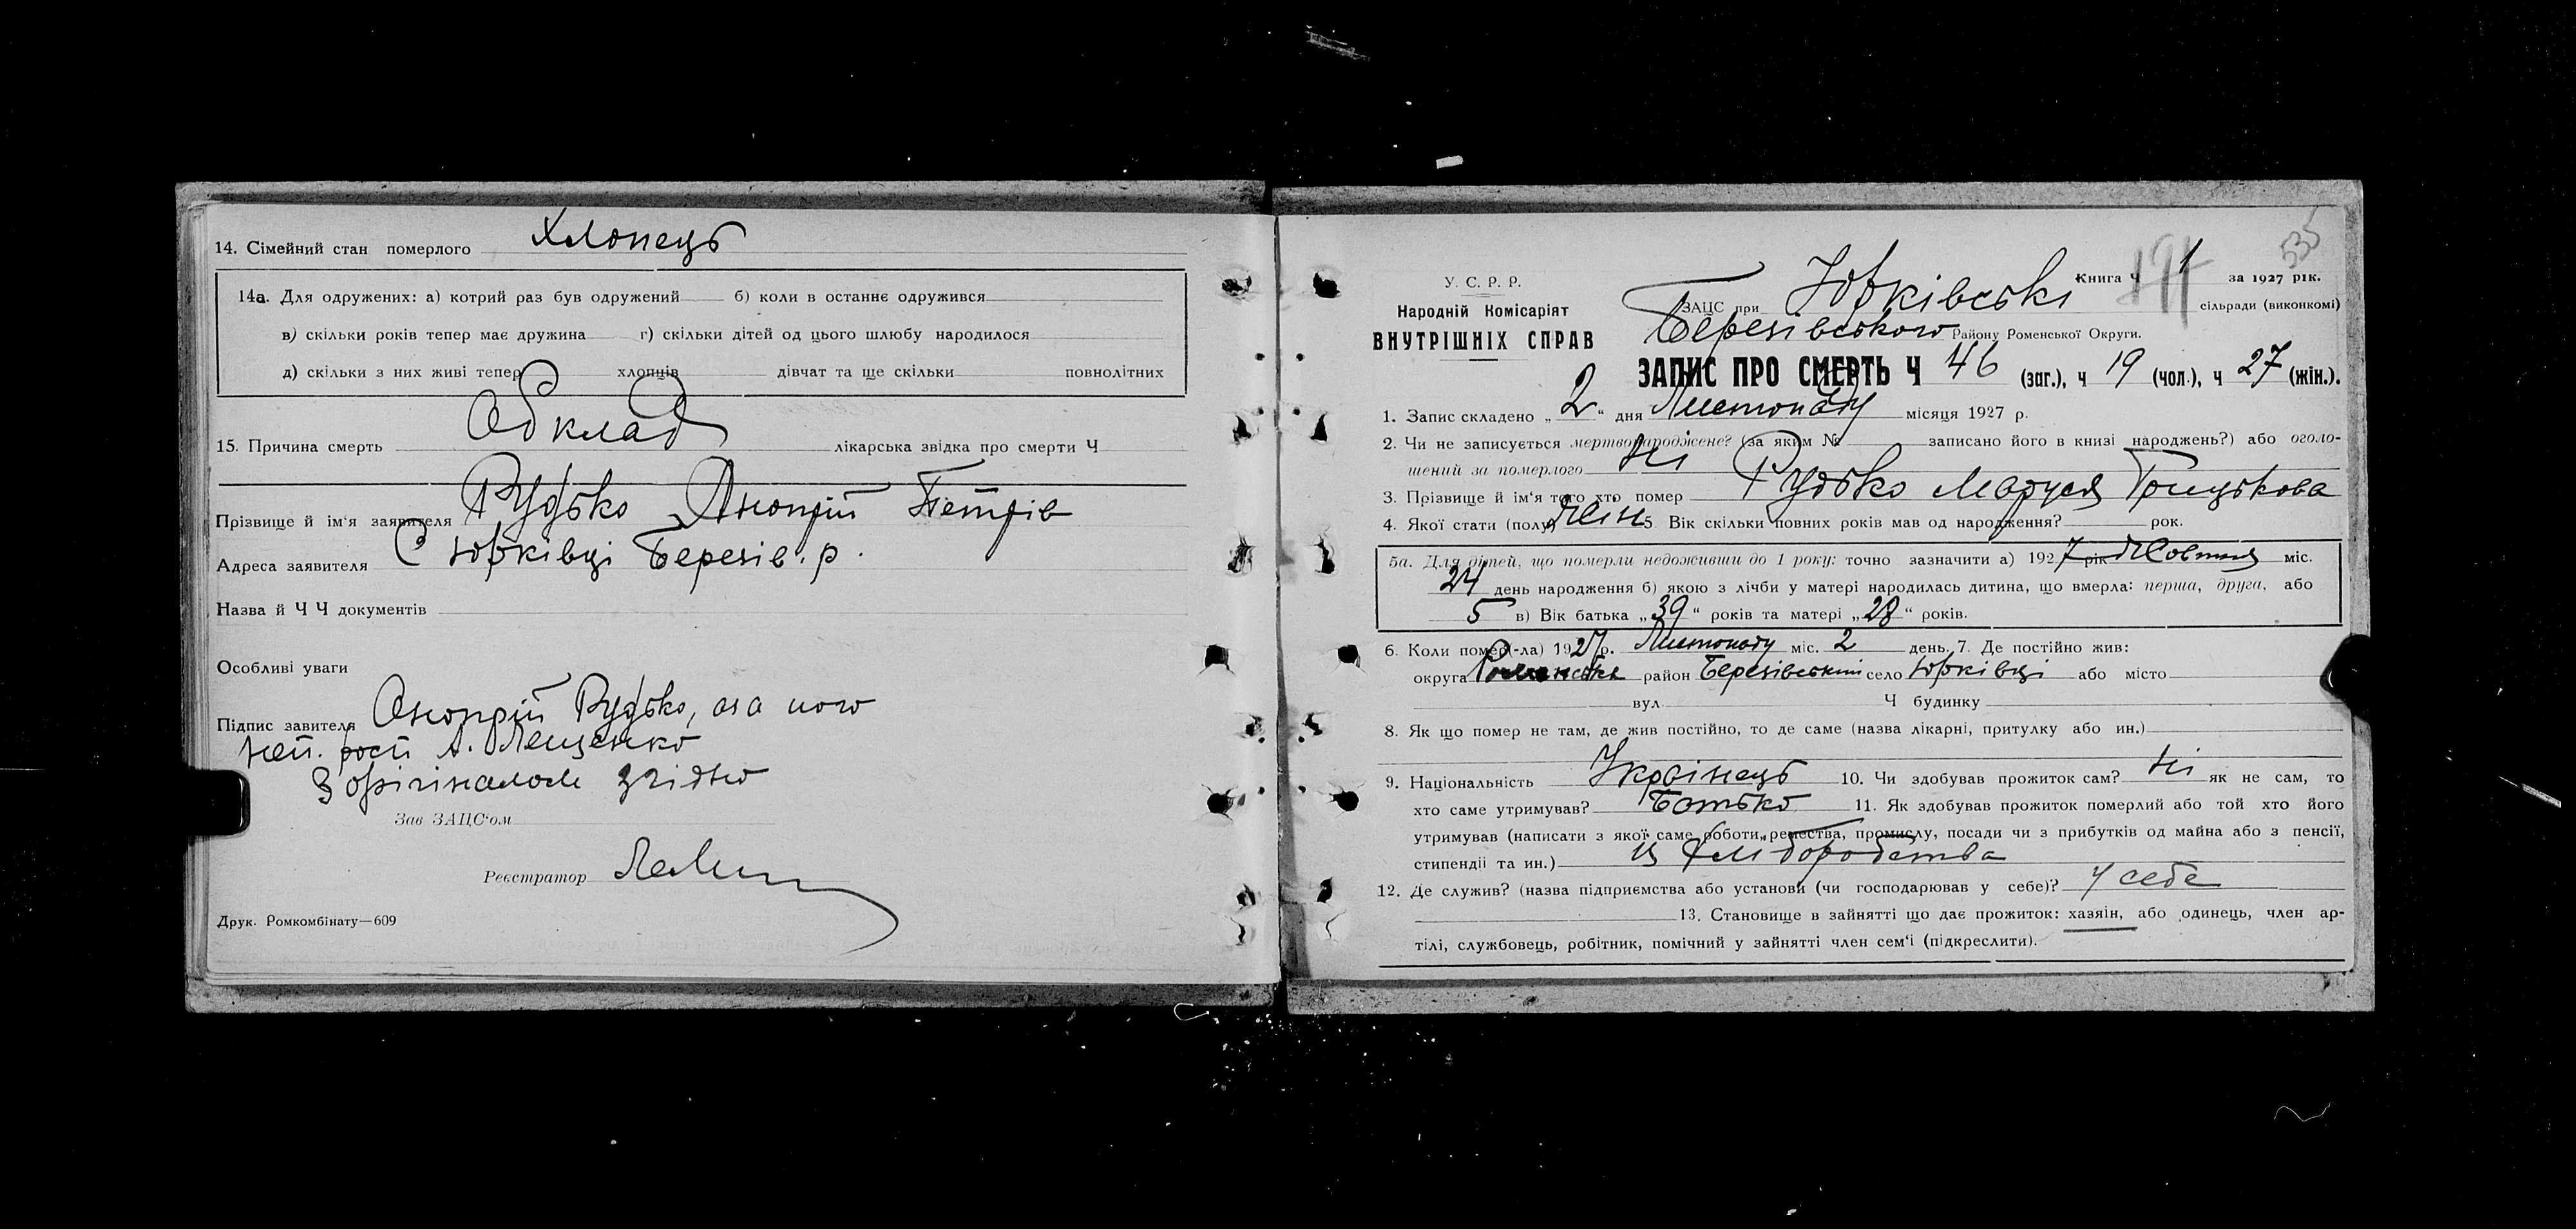 14. Сімейний стан померлого Хлопець
14а. Для одружених: а) котрий раз був одружений б) коли в останнє одружився
в) скільки років тепер має дружина г) скільки дітей од цього шлюбу народилося
д) скільки з них живі тепер хлопців дівчат та ще скільки повнолітних
15. Причина смерть Обклад лікарська звідка про смерти Ч
Прізвище й ім'я заявителя Рудько Онопрій Петрів
Адреса заявителя С Юрківці Березів. р.
Назва й Ч Ч документів
Особливі уваги
Підпис завителя Онопрій Рудько, а за ного
неп. рост А. Лещенко
З орігіналом згідно
Зав ЗАЦС'ом
Реєстратор
Друк. Ромкомбінату—609
535
191
Книга Ч 1 за 1927 рік.
У. С. Р. Р.
Народній Комісаріят
ВНУТРІШНІХ СПРАВ
ЗАЦС при Юрківські сільради (виконкомі)
Березівського Району Роменської Округи.
ЗАПИС ПРО СМЕРТЬ Ч 46 (заг.), ч 19 (чол.), ч 27 (жін.).
1. Запис складено „2“ дня Листопаду місяця 1927 р.
2. Чи не записується мертвонароджене? (за яким № записано його в книзі народжень?) або оголо-
шений за померлого Ні
3. Прізвище й ім'я того хто помер Рудько Маруся Грицькова
4. Якої стати (полу) Жін 5. Вік скільки повних років мав од народження? рок.
5а. Для дітей, що померли недоживши до 1 року: точно зазначити а) 1927 рік Жовтня міс.
24 день народження б) якою з лічби у матері народилась дитина, що вмерла: перша, друга, або
5 в) Вік батька „39“ років та матері „28“ років.
6. Коли помер(-ла) 1927р. Листопаду міс. 2 день. 7. Де постійно жив:
округа Роменська район Березівський село Юрківці або місто
вул. Ч будинку
8. Як що помер не там, де жив постійно, то де саме (назва лікарні, притулку або ин.)
9. Національність Українець 10. Чи здобував прожиток сам? Ні як не сам, то
хто саме утримував? Батько 11. Як здобував прожиток померлий або той хто його
утримував (написати з якої саме роботи, ремества, промислу, посади чи з прибутків од майна або з пенсії,
стипендії та ин.) Із хліборобства
12. Де служив? (назва підприємства або установи (чи господарював у себе)? У себе
13. Становище в зайнятті що дає прожиток: хазяїн, або одинець, член ар-
тілі, службовець, робітник, помічний у зайнятті член сем'ї (підкреслити).